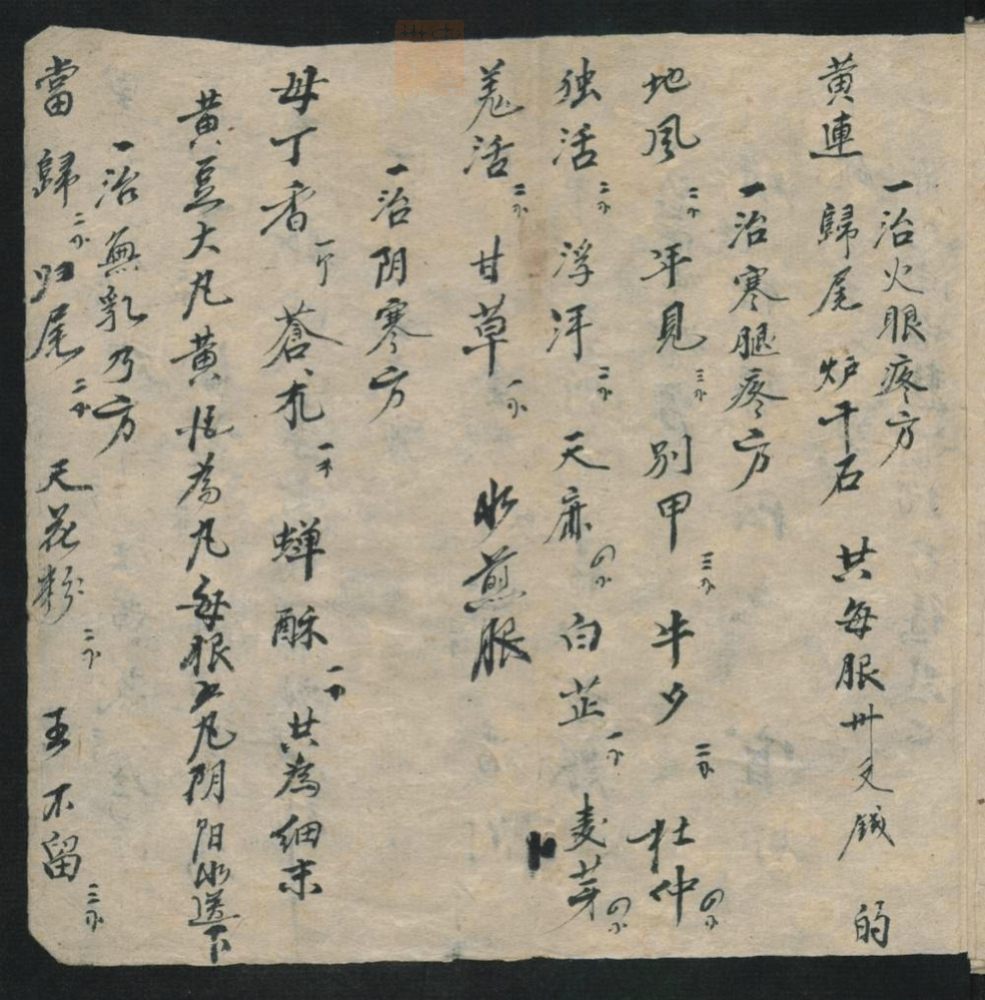 一治火眼疼方
黄連 歸尾 炉干石 共每服卅文錢 的
一治寒腿疼方
地風二分 年見三分 别甲三分 牛夕三分 杜仲四分
独活二分 浮萍二分 天麻四分 白芷一分 麦芽四分
羌活二分 甘草一分 水煎服
一治阴寒方
母丁香一 蒼术一 蝉酥一分 共為细末
黄豆大凡 黄 為凡 每服 凡 阴阳水送下
一治無乳乃方
當歸二分 归尾二分 天花粉二分 王不留三分